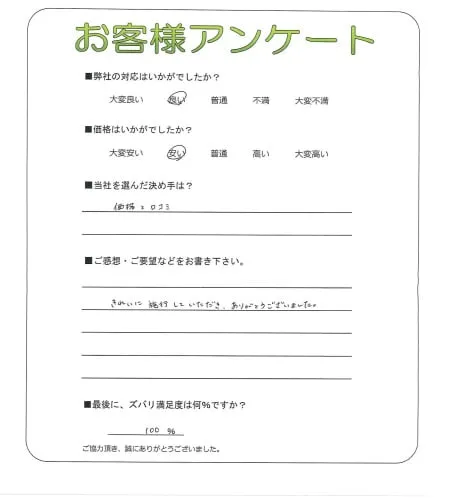 お客様アンケート
■弊社の対応はいかがでしたか？
大変良い 良い 普通 不満 大変不満
■価格はいかがでしたか？
大変安い 安い 普通 高い 大変高い
■当社を選んだ決め手は？
価格と口コミ
■ご感想・ご要望などをお書き下さい。
きれいに施行していただき、ありがとうございました。
■最後に、ズバリ満足度は何%ですか？
100 %
ご協力頂き、誠にありがとうございました。